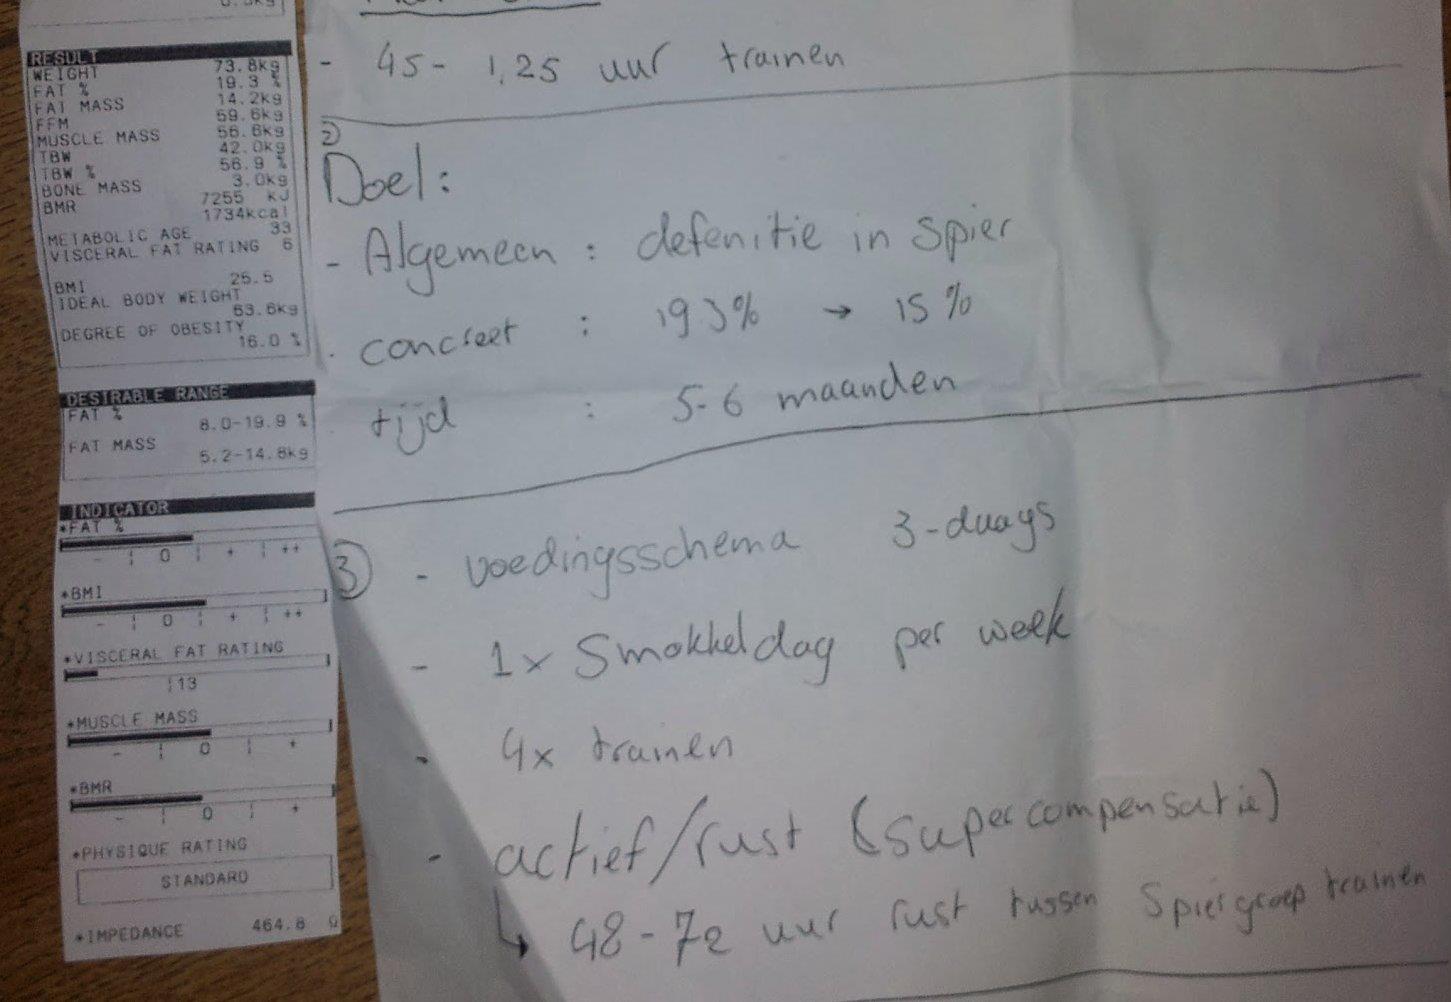 RESULT
WEIGHT 73.8kg
FAT % 19.3 %
FAT MASS 14.2kg
FFM 59.6kg
MUSCLE MASS 56.6kg
TBW 42.0kg
TBW % 56.9 %
BONE MASS 3.0kg
BMR 7255 kJ
1734kcal
METABOLIC AGE 33
VISCERAL FAT RATING 6
BMI 25.5
IDEAL BODY WEIGHT
63.6kg
DEGREE OF OBESITY
16.0 %
DESIRABLE RANGE
FAT %
8.0-19.9 %
FAT MASS
5.2-14.8kg
INDICATOR
*FAT %
- 0 + ++
*BMI
- 0 + ++
*VISCERAL FAT RATING
13
*MUSCLE MASS
- 0 +
*BMR
- 0 +
*PHYSIQUE RATING
STANDARD
*IMPEDANCE 464.8 Ω
- 45 - 1,25 uur trainen
2)
Doel:
- Algemeen : defenitie in spier
- concreet : 19.3% → 15%
- tijd : 5-6 maanden
3) - voedingsschema 3-daags
- 1x Smokkeldag per week
- 4x trainen
- actief/rust (supercompensatie)
↳ 48-72 uur rust tussen spiergroep trainen